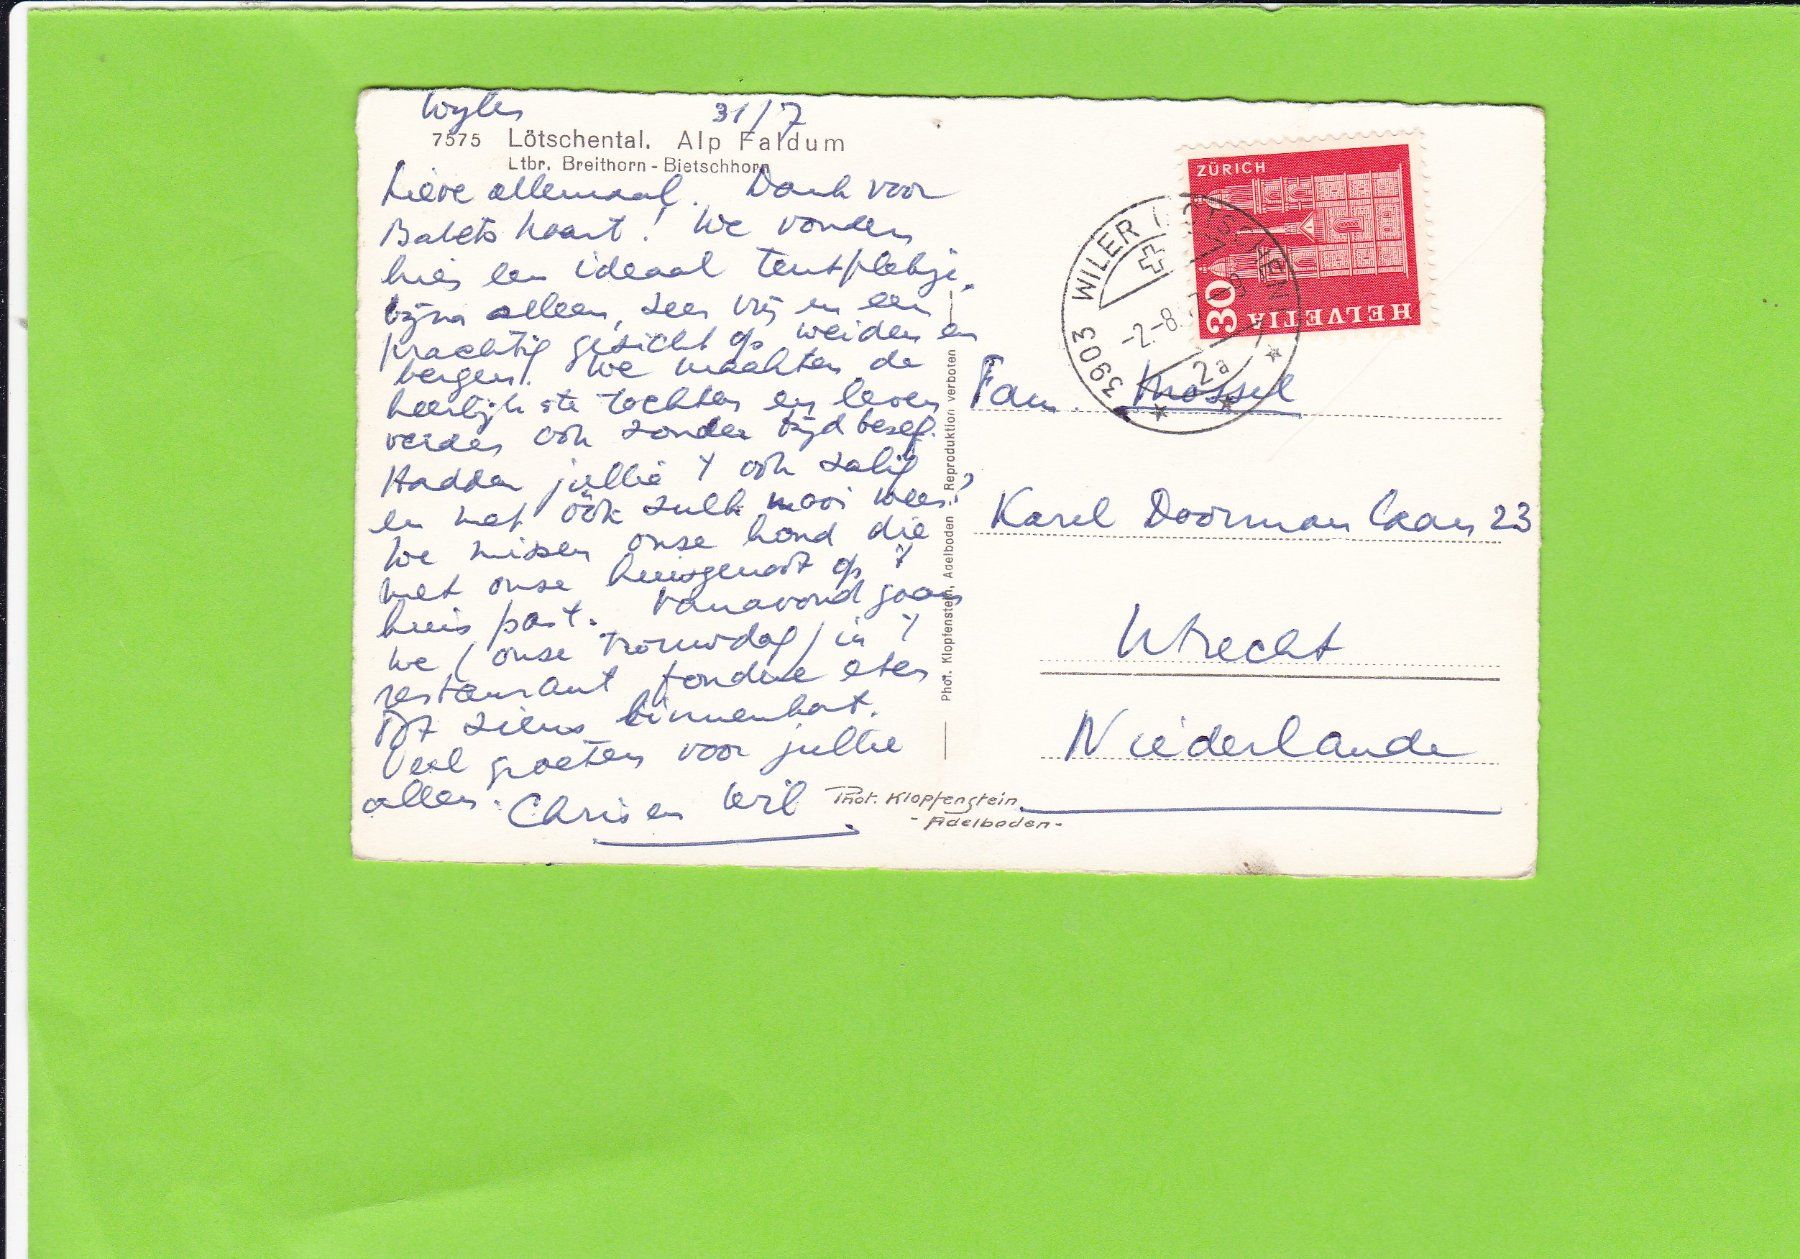 Wyler 31/7
7575 Lötschental. Alp Faldum
Ltbr. Breithorn - Bietschhorn
Lieve allemaal. Dank voor
kaart! We vonden
hier een ideaal tentplekje,
bijna alleen, zeer vrij en een
prachtig gezicht op weiden en
bergen. We maakten de
heerlijkste tochten en leven
verder ook zonder tijdbesef.
Hadden jullie 't ook zalig
en met óók zulk mooi weer?
We missen onze hond die
met onze huisgenoot op 't
huis past. Vanavond gaan
we (onze trouwdag) in 't
restaurant fondue eten
Tot ziens binnenkort.
Veel groeten voor jullie
allen. Chris en Wil
Phot. Klopfenstein
- Adelboden -
Phot. Klopfenstein, Adelboden Reproduktion verboten
ZÜRICH
30
HELVETIA
3903 WILER
-2.-8.
2a
Fam. Mossel
Karel Doorman laan 23
Utrecht
Niederlande